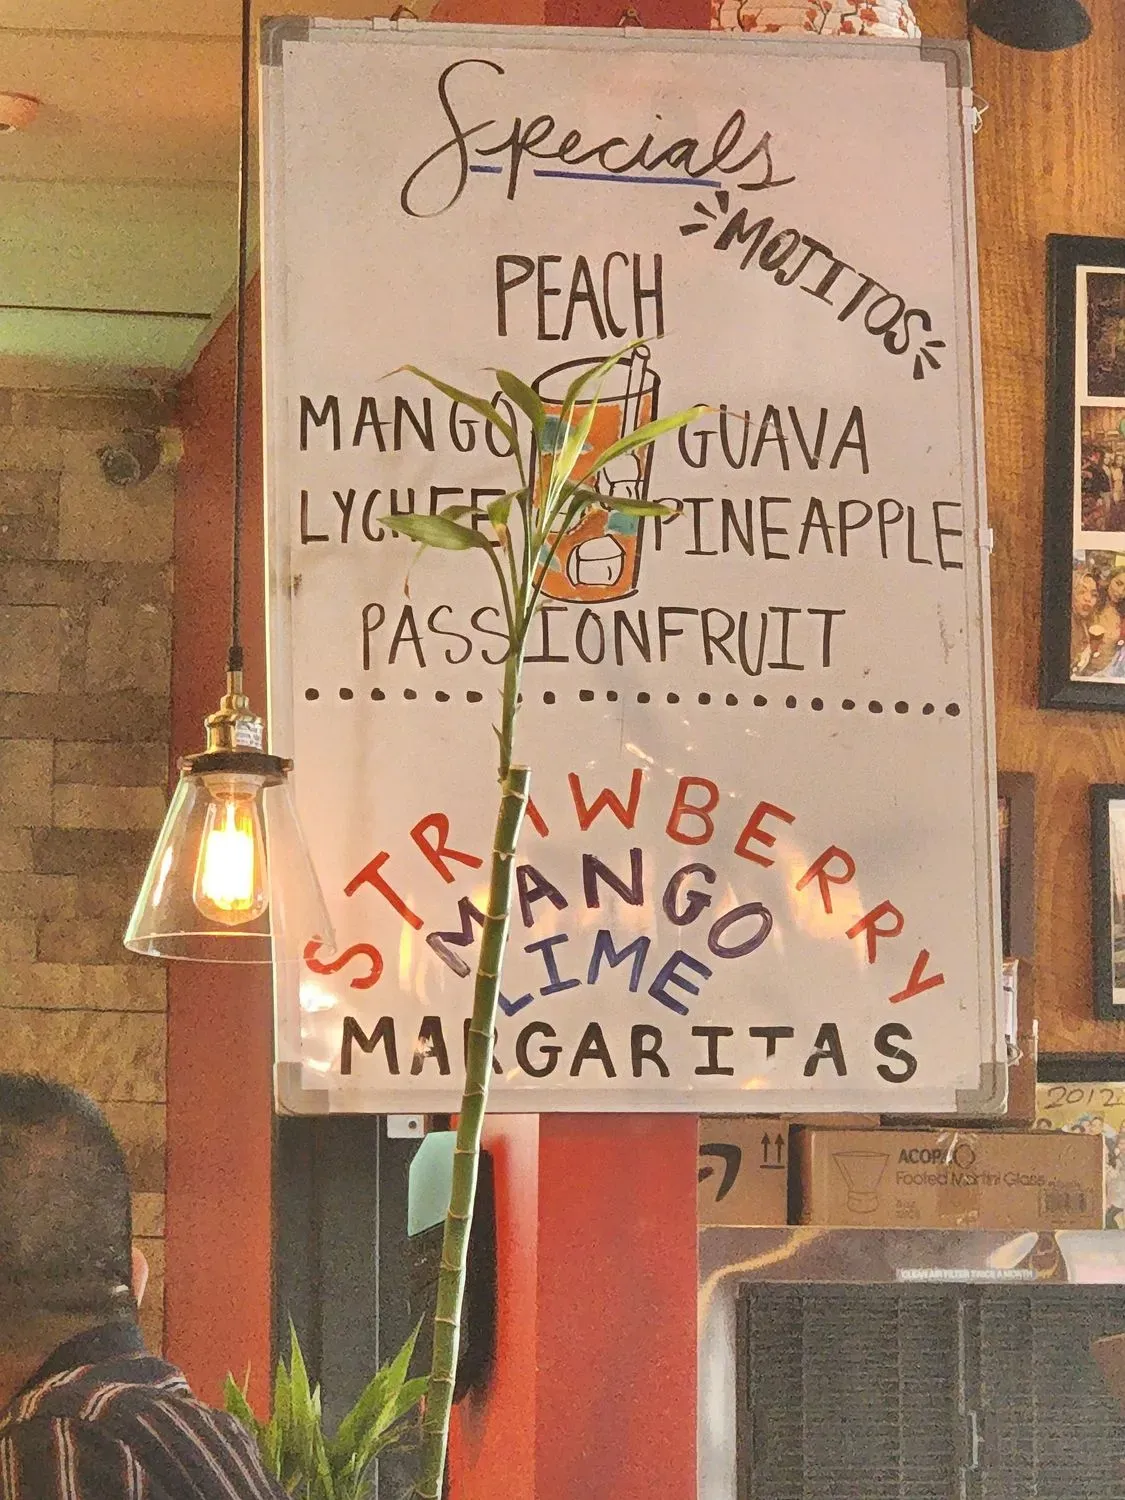 Specials
MOJITOS
PEACH
MANGO GUAVA
LYCHEE PINEAPPLE
PASSIONFRUIT
STRAWBERRY
MANGO
LIME
MARGARITAS
2012
ACOPA
Footed Martini Glass
CLEAN AIR FILTER TWICE A MONTH